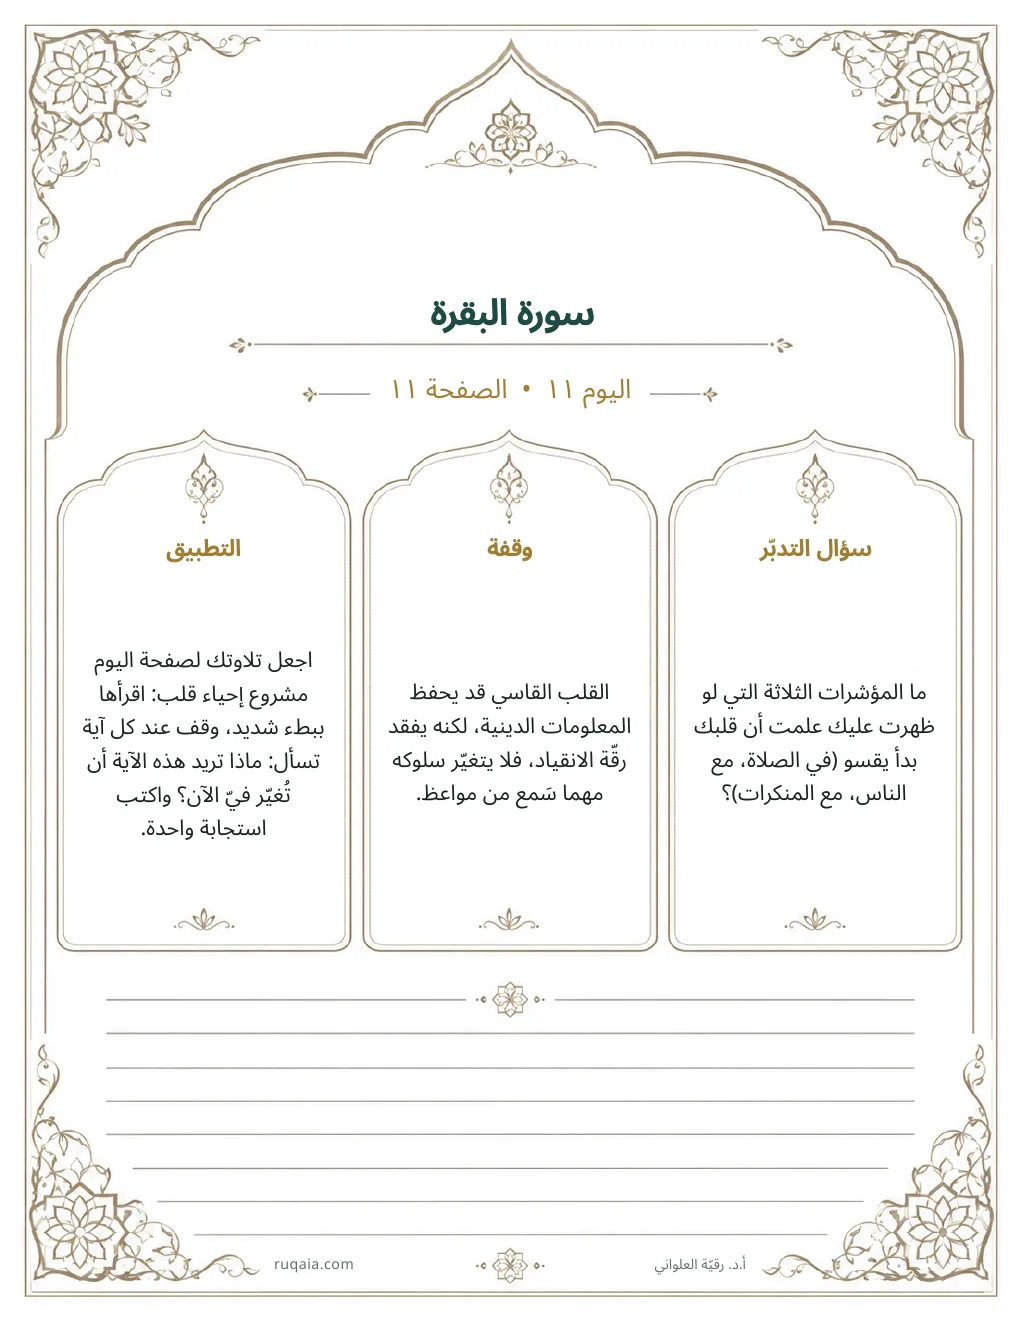 سورة البقرة
اليوم ١١ • الصفحة ١١
سؤال التدبّر
ما المؤشرات الثلاثة التي لو
ظهرت عليك علمت أن قلبك
بدأ يقسو (في الصلاة، مع
الناس، مع المنكرات)؟
وقفة
القلب القاسي قد يحفظ
المعلومات الدينية، لكنه يفقد
رقّة الانقياد، فلا يتغيّر سلوكه
مهما سَمع من مواعظ.
التطبيق
اجعل تلاوتك لصفحة اليوم
مشروع إحياء قلب: اقرأها
ببطء شديد، وقف عند كل آية
تسأل: ماذا تريد هذه الآية أن
تُغيّر فيّ الآن؟ واكتب
استجابة واحدة.
أ.د. رقيّة العلواني
ruqaia.com